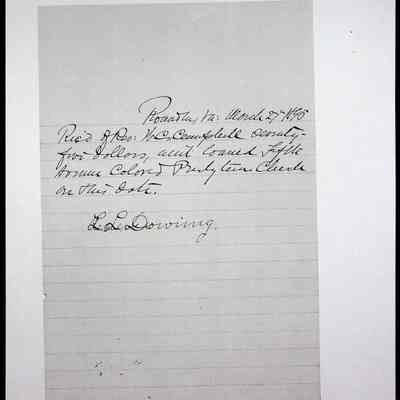 Roanoke, Va. March 27 1895
Rec'd of Rev. W. C. Campbell seventy-
five Dollars, amt loaned Fifth
Avenue Colored Presbyterian Church
on this date.
L. L. Downing.